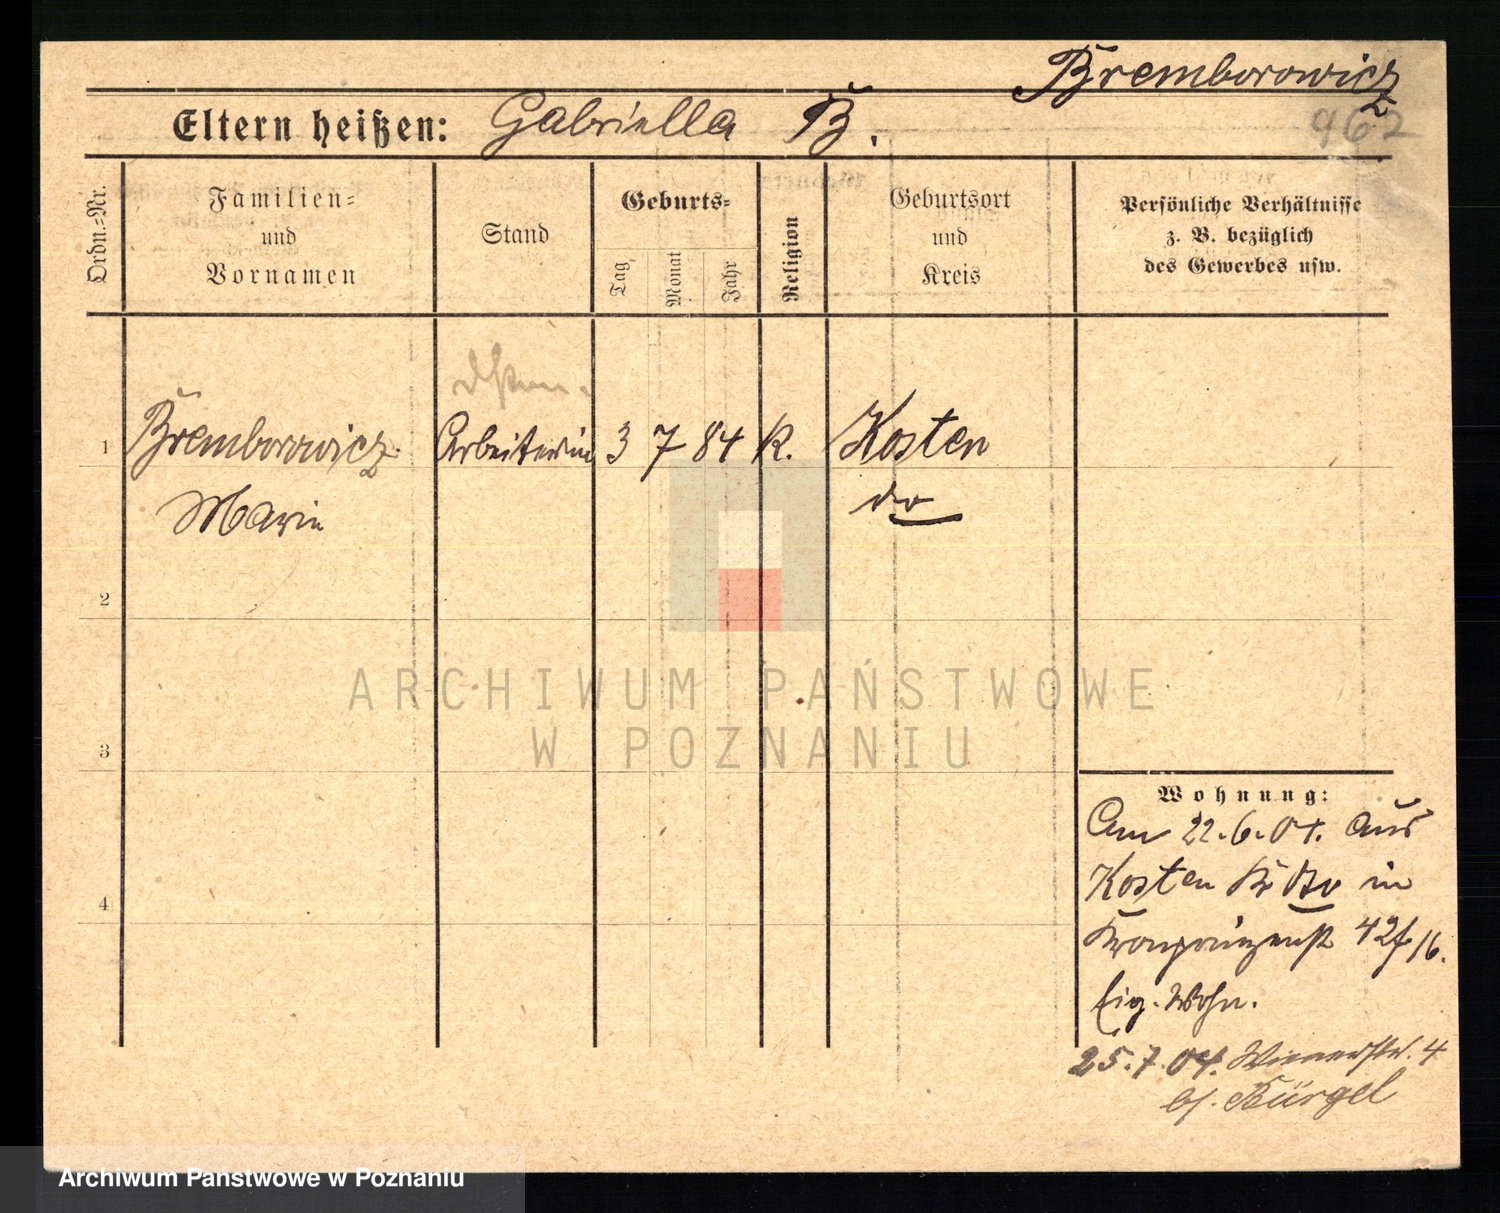 Bremborowicz
962
Eltern heißen: Gabriella B.
Ordn.-Nr.
Familien- und Vornamen
Stand
Geburts-
Tag
Monat
Jahr
Religion
Geburtsort und Kreis
Persönliche Verhältnisse
z. B. bezüglich
des Gewerbes usw.
1 Bremborowicz Arbeiterin 3 7 84 K. Kosten
Marie do
2
3
4
ARCHIWUM PAŃSTWOWE
W POZNANIU
Wohnung:
Am 22.6.04. aus
Kosten Kr in
Kronprinzenstr 42
Eig. Wohn.
25.7.04. Wienerstr. 4
b/. Bürgel
Archiwum Państwowe w Poznaniu